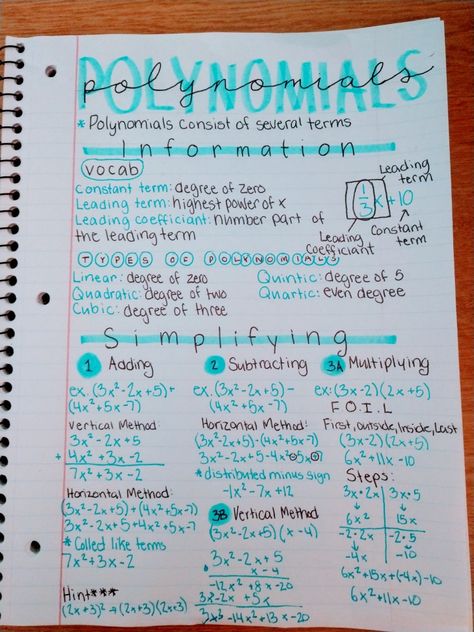 POLYNOMIALS
polynomials
* Polynomials consist of several terms
Information
vocab
Constant term: degree of zero
Leading term: highest power of x
Leading coefficiant: number part of
the leading term
Leading
term
1/3x+10
Leading
Coefficiant
Constant
term
TYPES OF POLYNOMIALS
Linear: degree of zero
Quadratic: degree of two
Cubic: degree of three
Quintic: degree of 5
Quartic: even degree
Simplifying
1 Adding
ex. (3x²-2x+5)+
(4x²+5x-7)
Vertical Method:
3x²-2x+5
+ 4x²+3x-2
7x²+3x-2
Horizontal Method:
(3x²-2x+5)+(4x²+5x-7)
3x²-2x+5+4x²+5x-7
* Colled like terms
7x²+3x-2
Hint***
(2x+3)²→(2x+3)(2x+3)
2 Subtracting
ex. (3x²-2x+5)-
(4x²+5x-7)
Horizontal Method:
(3x²-2x+5)-(4x²+5x-7)
3x²-2x+5-4x²-5x+7
* distributed minus sign
-1x²-7x+12
3B Vertical Method
(3x²-2x+5)(x-4)
3x²-2x+5
x-4
-12x²+8x-20
3x³-2x²+5x
3x³-14x²+13x-20
3A Multiplying
ex: (3x-2)(2x+5)
F.O.I.L
First, outside, Inside, Last
(3x-2)(2x+5)
6x²+11x-10
Steps:
3x·2x 3x·5
6x² 15x
-2·2x -2·5
-4x -10
6x²+15x+(-4x)-10
6x²+11x-10